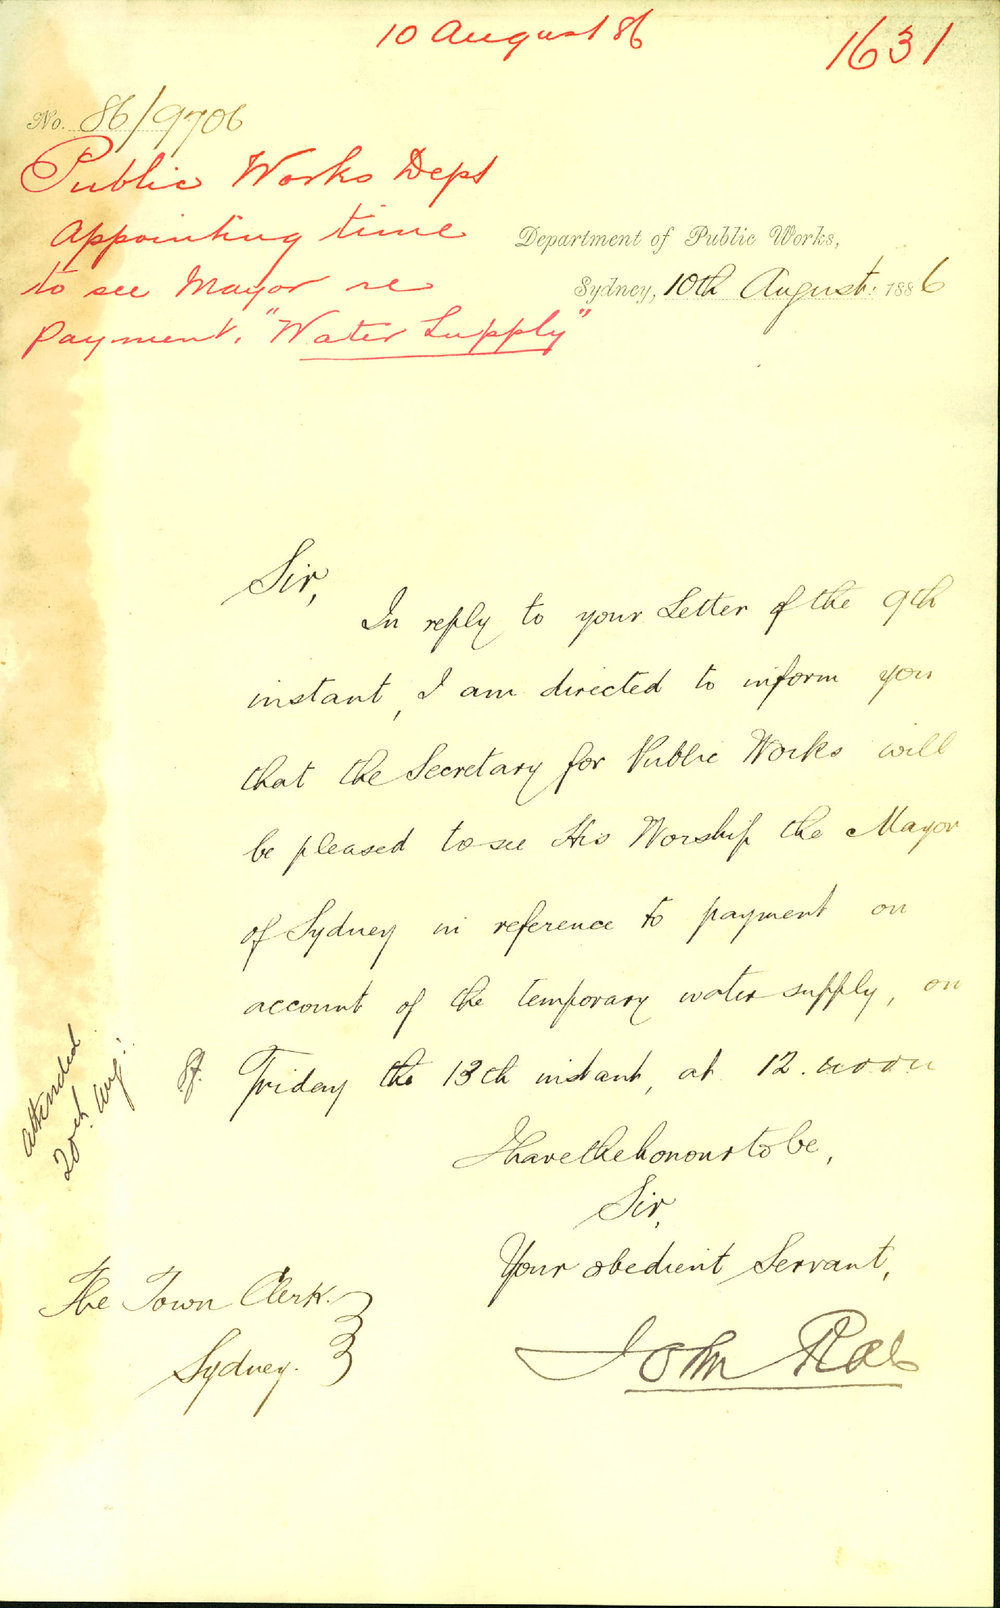 10 August 86
1631
No. 86/9706
Public Works Dept
Appointing time
to see Mayor re
Payment. "Water Supply"
Department of Public Works,
Sydney, 10th August: 1886
Sir,
In reply to your Letter of the 9th
instant, I am directed to inform you
that the Secretary for Public Works will
be pleased to see His Worship the Mayor
of Sydney in reference to payment on
account of the temporary water supply, on
Friday the 13th instant, at 12. noon
I have the honour to be,
Sir,
Your obedient Servant,
John Rae
attended
20th Aug:
The Town Clerk.
Sydney.